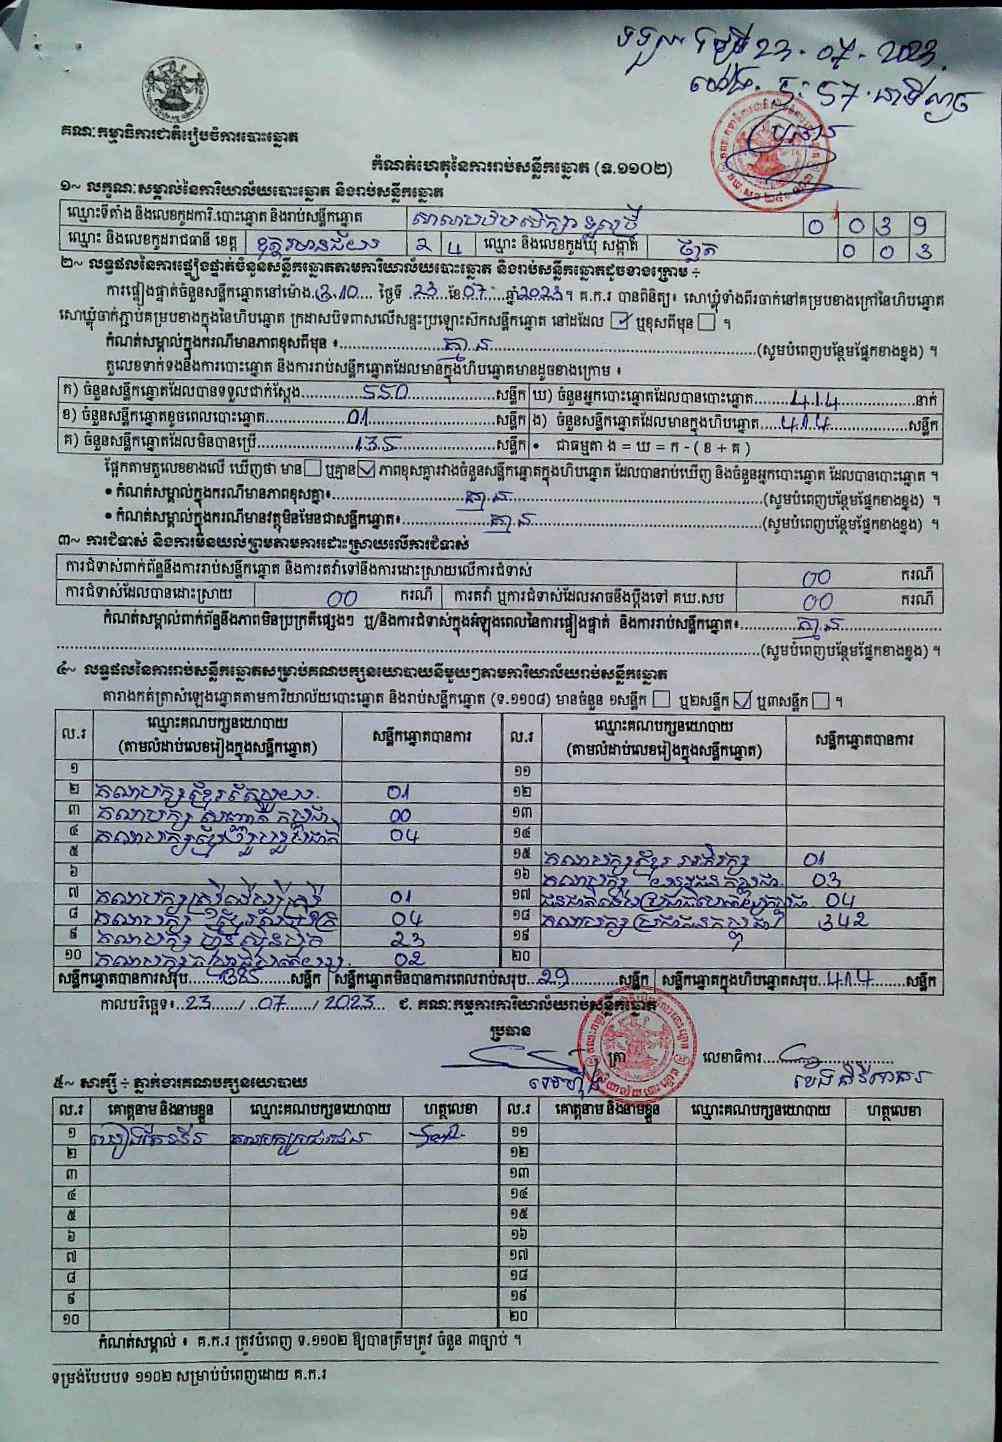 23. 07. 2023.
គណៈកម្មាធិការជាតិរៀបចំការបោះឆ្នោត
កំណត់ហេតុនៃការរាប់សន្លឹកឆ្នោត (ទ.១១០២)
១~ លក្ខណៈសម្គាល់នៃការិយាល័យបោះឆ្នោត និងរាប់សន្លឹកឆ្នោត
ឈ្មោះទីតាំង និងលេខកូដការិ.បោះឆ្នោត និងរាប់សន្លឹកឆ្នោត 0 0 3 9
ឈ្មោះ និងលេខកូដរាជធានី ខេត្ត ឧត្តរមានជ័យ 2 4 ឈ្មោះ និងលេខកូដឃុំ សង្កាត់ 0 0 3
២~ លទ្ធផលនៃការផ្ទៀងផ្ទាត់ចំនួនសន្លឹកឆ្នោតតាមការិយាល័យបោះឆ្នោត និងរាប់សន្លឹកឆ្នោតដូចខាងក្រោម ÷
ការផ្ទៀងផ្ទាត់ចំនួនសន្លឹកឆ្នោតនៅម៉ោង 3:10 ថ្ងៃទី 23 ខែ 07 ឆ្នាំ 2023 ។ គ.ក.រ បានពិនិត្យ៖ សោឃ្លុំទាំងពីរចាក់នៅគម្របខាងក្រៅនៃហិបឆ្នោត
សោឃ្លុំចាក់ភ្ជាប់គម្របខាងក្នុងនៃហិបឆ្នោត ក្រដាសបិទពាសលើសន្ទះប្រឡោះស៊កសន្លឹកឆ្នោត នៅដដែល ☑ ឬខុសពីមុន ☐ ។
កំណត់សម្គាល់ក្នុងករណីមានភាពខុសពីមុន ៖ គ្មាន (សូមបំពេញបន្ថែមផ្នែកខាងខ្នង) ។
តួលេខទាក់ទងនឹងការបោះឆ្នោត និងការរាប់សន្លឹកឆ្នោតដែលមានក្នុងហិបឆ្នោតមានដូចខាងក្រោម ៖
ក) ចំនួនសន្លឹកឆ្នោតដែលបានទទួលជាក់ស្តែង 550 សន្លឹក ឃ) ចំនួនអ្នកបោះឆ្នោតដែលបានបោះឆ្នោត 414 នាក់
ខ) ចំនួនសន្លឹកឆ្នោតខូចពេលបោះឆ្នោត 01 សន្លឹក ង) ចំនួនសន្លឹកឆ្នោតដែលមានក្នុងហិបឆ្នោត 414 សន្លឹក
គ) ចំនួនសន្លឹកឆ្នោតដែលមិនបានប្រើ 135 សន្លឹក • ជាធម្មតា ង = ឃ = ក - ( ខ + គ )
ផ្អែកតាមតួលេខខាងលើ ឃើញថា មាន ☐ ឬគ្មាន ☑ ភាពខុសគ្នារវាងចំនួនសន្លឹកឆ្នោតក្នុងហិបឆ្នោត ដែលបានរាប់ឃើញ និងចំនួនអ្នកបោះឆ្នោត ដែលបានបោះឆ្នោត ។
• កំណត់សម្គាល់ក្នុងករណីមានភាពខុសគ្នា៖ គ្មាន (សូមបំពេញបន្ថែមផ្នែកខាងខ្នង) ។
• កំណត់សម្គាល់ក្នុងករណីមានវត្ថុមិនមែនជាសន្លឹកឆ្នោត៖ គ្មាន (សូមបំពេញបន្ថែមផ្នែកខាងខ្នង) ។
៣~ ការជំទាស់ និងការមិនយល់ព្រមតាមការដោះស្រាយលើការជំទាស់
ការជំទាស់ពាក់ព័ន្ធនឹងការរាប់សន្លឹកឆ្នោត និងការតវ៉ាទៅនឹងការដោះស្រាយលើការជំទាស់ 00 ករណី
ការជំទាស់ដែលបានដោះស្រាយ 00 ករណី ការតវ៉ា ឬការជំទាស់ដែលអាចនឹងប្តឹងទៅ គឃ.សប 00 ករណី
កំណត់សម្គាល់ពាក់ព័ន្ធនឹងភាពមិនប្រក្រតីផ្សេងៗ ឬ/និងការជំទាស់ក្នុងអំឡុងពេលនៃការផ្ទៀងផ្ទាត់ និងការរាប់សន្លឹកឆ្នោត៖ គ្មាន
(សូមបំពេញបន្ថែមផ្នែកខាងខ្នង) ។
៤~ លទ្ធផលនៃការរាប់សន្លឹកឆ្នោតសម្រាប់គណបក្សនយោបាយនីមួយៗតាមការិយាល័យរាប់សន្លឹកឆ្នោត
តារាងកត់ត្រាសំឡេងឆ្នោតតាមការិយាល័យបោះឆ្នោត និងរាប់សន្លឹកឆ្នោត (ទ.១១០៨) មានចំនួន ១សន្លឹក ☐ ឬ២សន្លឹក ☑ ឬ៣សន្លឹក ☐ ។
ល.រ ឈ្មោះគណបក្សនយោបាយ (តាមលំដាប់លេខរៀងក្នុងសន្លឹកឆ្នោត) សន្លឹកឆ្នោតបានការ ល.រ ឈ្មោះគណបក្សនយោបាយ (តាមលំដាប់លេខរៀងក្នុងសន្លឹកឆ្នោត) សន្លឹកឆ្នោតបានការ
១ ១១
២ គណបក្ស 01 ១២
៣ គណបក្ស 00 ១៣
៤ គណបក្ស 04 ១៤
៥ ១៥ គណបក្សខ្មែរ 01
៦ ១៦ គណបក្ស 03
៧ គណបក្ស 01 ១៧ 04
៨ គណបក្ស 04 ១៨ គណបក្សប្រជាជនកម្ពុជា 342
៩ គណបក្ស 23 ១៩
១០ គណបក្ស 02 ២០
សន្លឹកឆ្នោតបានការសរុប 385 សន្លឹក សន្លឹកឆ្នោតមិនបានការពេលរាប់សរុប 29 សន្លឹក សន្លឹកឆ្នោតក្នុងហិបឆ្នោតសរុប 414 សន្លឹក
កាលបរិច្ឆេទ៖ 23 / 07 / 2023 ជ. គណៈកម្មការការិយាល័យរាប់សន្លឹកឆ្នោត
ប្រធាន
ត្រា លេខាធិការ
៥~ សាក្សី ÷ ភ្នាក់ងារគណបក្សនយោបាយ
ល.រ គោត្តនាម និងនាមខ្លួន ឈ្មោះគណបក្សនយោបាយ ហត្ថលេខា ល.រ គោត្តនាម និងនាមខ្លួន ឈ្មោះគណបក្សនយោបាយ ហត្ថលេខា
១ គណបក្សប្រជាជន ១១
២ ១២
៣ ១៣
៤ ១៤
៥ ១៥
៦ ១៦
៧ ១៧
៨ ១៨
៩ ១៩
១០ ២០
កំណត់សម្គាល់ ៖ គ.ក.រ ត្រូវបំពេញ ទ.១១០២ ឱ្យបានត្រឹមត្រូវ ចំនួន ៣ច្បាប់ ។
ទម្រង់បែបបទ ១១០២ សម្រាប់បំពេញដោយ គ.ក.រ